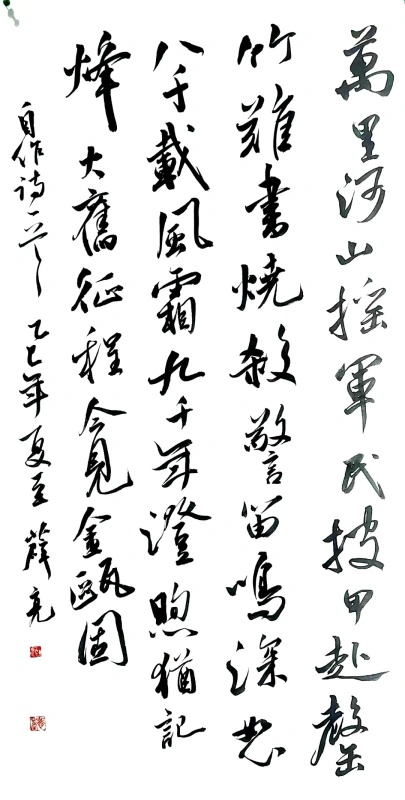 萬里河山搖軍民披甲赴罄
竹難書燒殺警笛鳴深
八千載風霜九千年澄煦猶記
烽火舊征程今見金甌固
自作詩一首 乙巳年夏至 薛亮